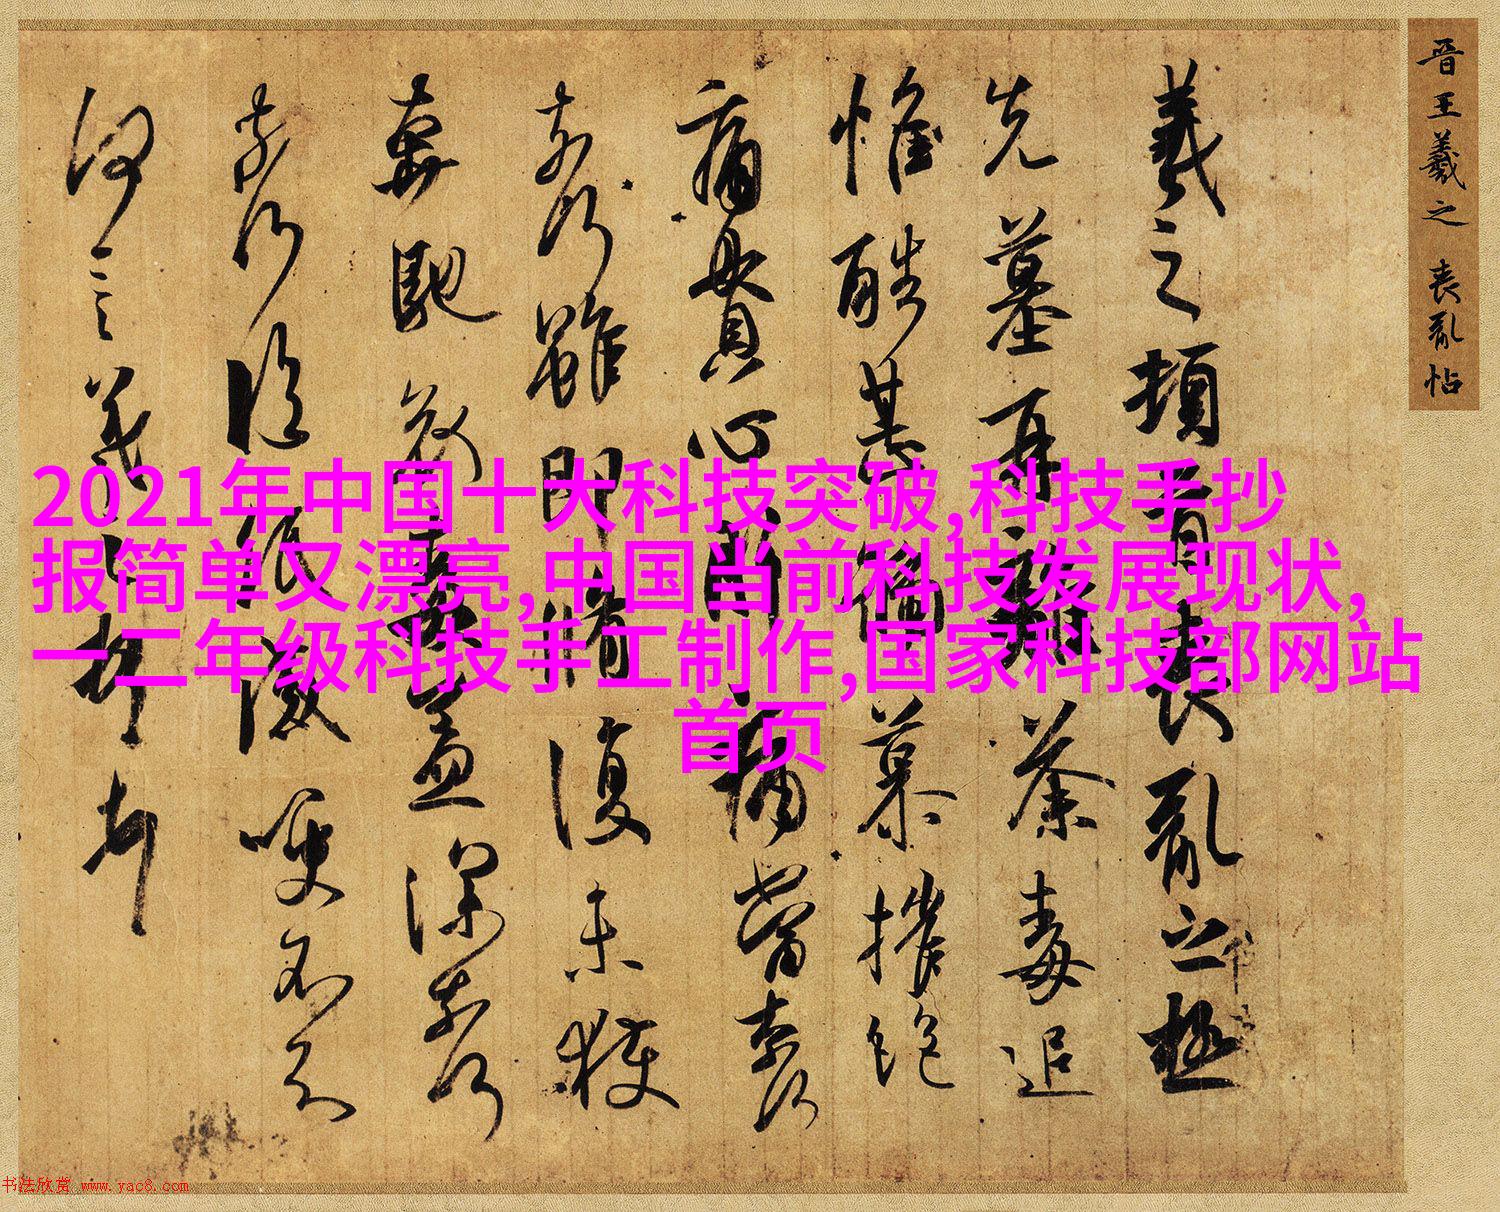 晋王羲之 丧乱帖
羲之頓首喪亂之極
先墓再離荼毒追
惟酷甚號慕摧絕
痛貫心肝痛當奈何
奈何雖即脩復未獲
奔馳哀毒益深奈何
奈何臨紙感哽不知
何言羲之頓首頓首
2021年中国十大科技突破,科技手抄
报简单又漂亮,中国当前科技发展现状,
一二年级科技手工制作,国家科技部网站
首页
书法欣赏 www.yac8.com